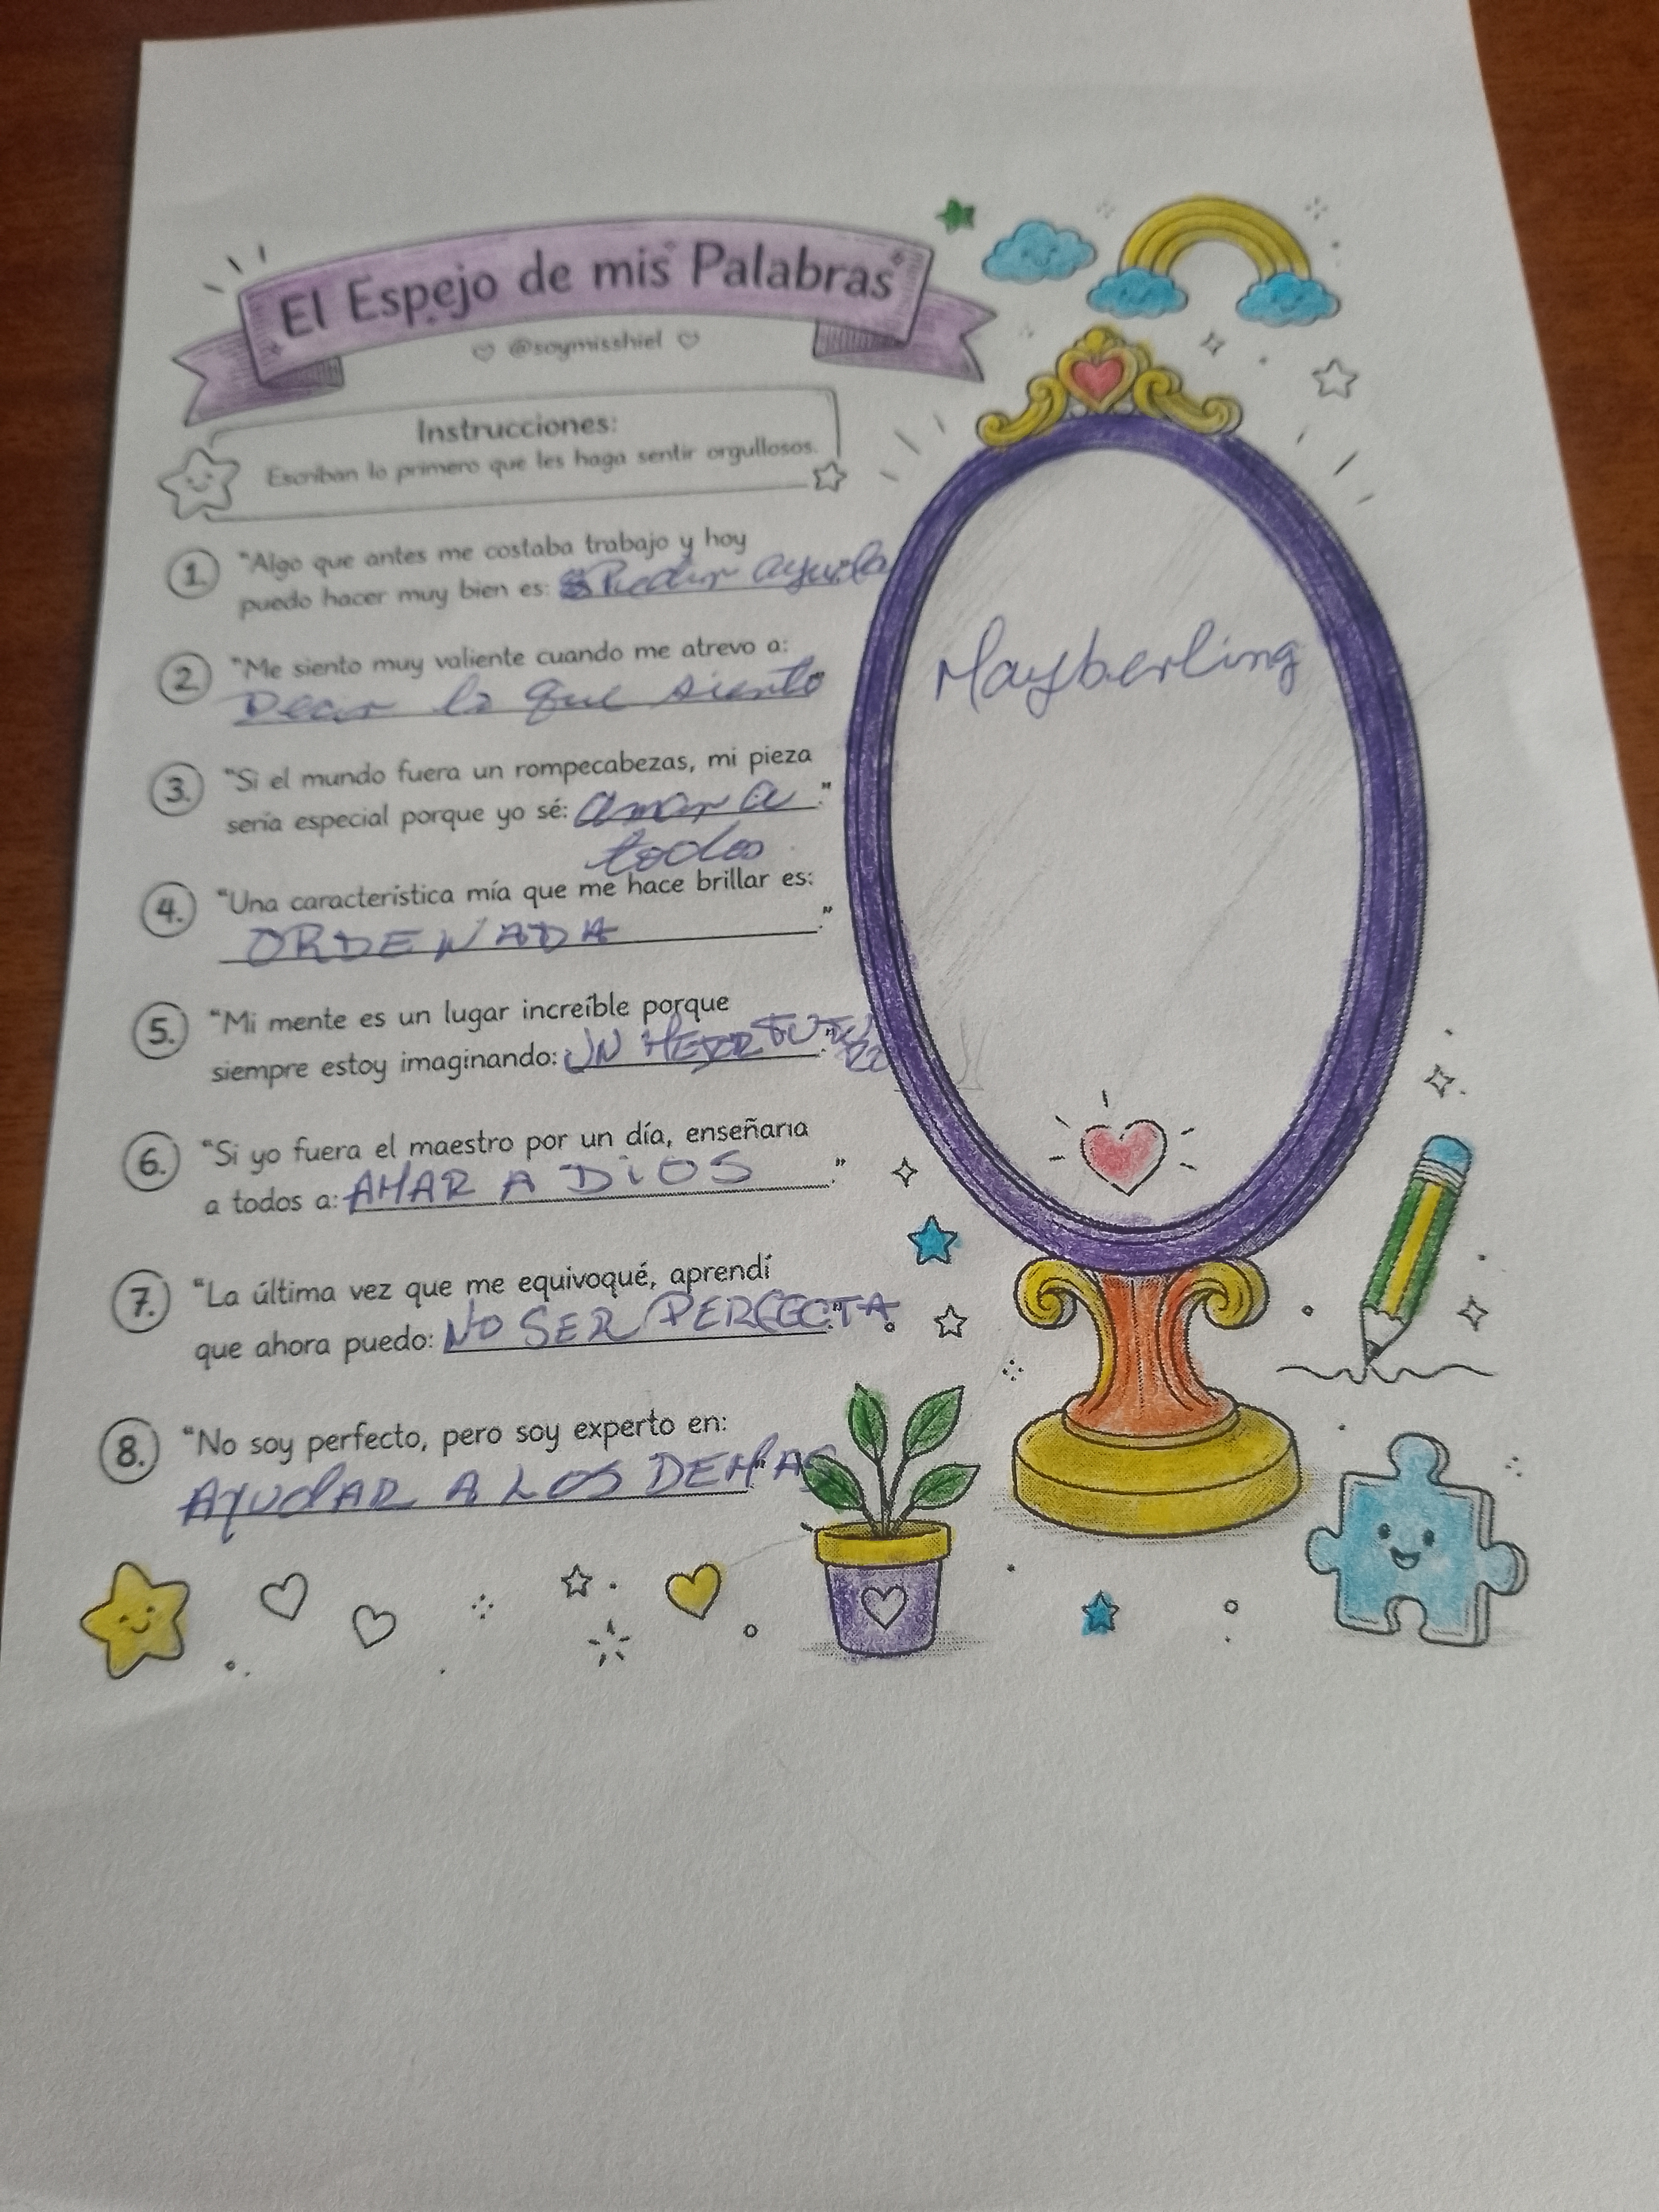 El Espejo de mis Palabras
@soymisshiel
Instrucciones:
Escriban lo primero que les haga sentir orgullosos.
1. "Algo que antes me costaba trabajo y hoy
puedo hacer muy bien es: Pedir ayuda
2. "Me siento muy valiente cuando me atrevo a:
Decir lo que siento"
3. "Si el mundo fuera un rompecabezas, mi pieza
sería especial porque yo sé: amar a."
todos
4. "Una característica mía que me hace brillar es:
ORDENADA."
5. "Mi mente es un lugar increíble porque
siempre estoy imaginando: UN."
6. "Si yo fuera el maestro por un día, enseñaría
a todos a: AMAR A DiOS."
7. "La última vez que me equivoqué, aprendí
que ahora puedo: NO SER PERFECTA."
8. "No soy perfecto, pero soy experto en:
AYUdAR A LOS DEMAS."
Mayberling